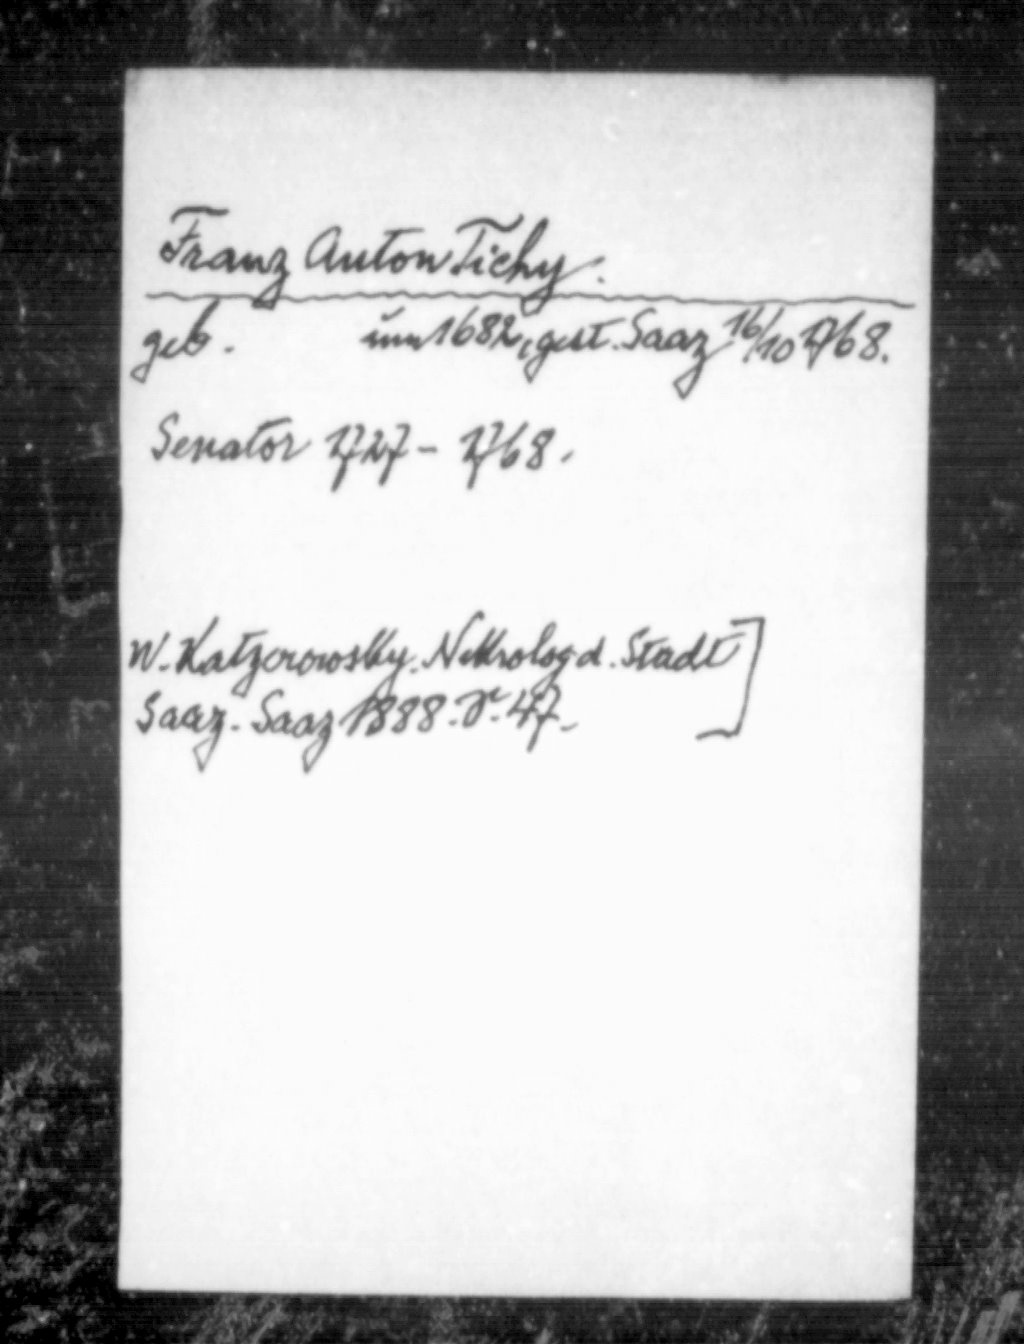 Franz Anton Tichy.
geb. um 1682, gest. Saaz 16/10 1768.
Senator 1727 - 1768.
W. Katzerowsky. Nekrolog d. Stadt
Saaz. Saaz 1888. S. 47.]